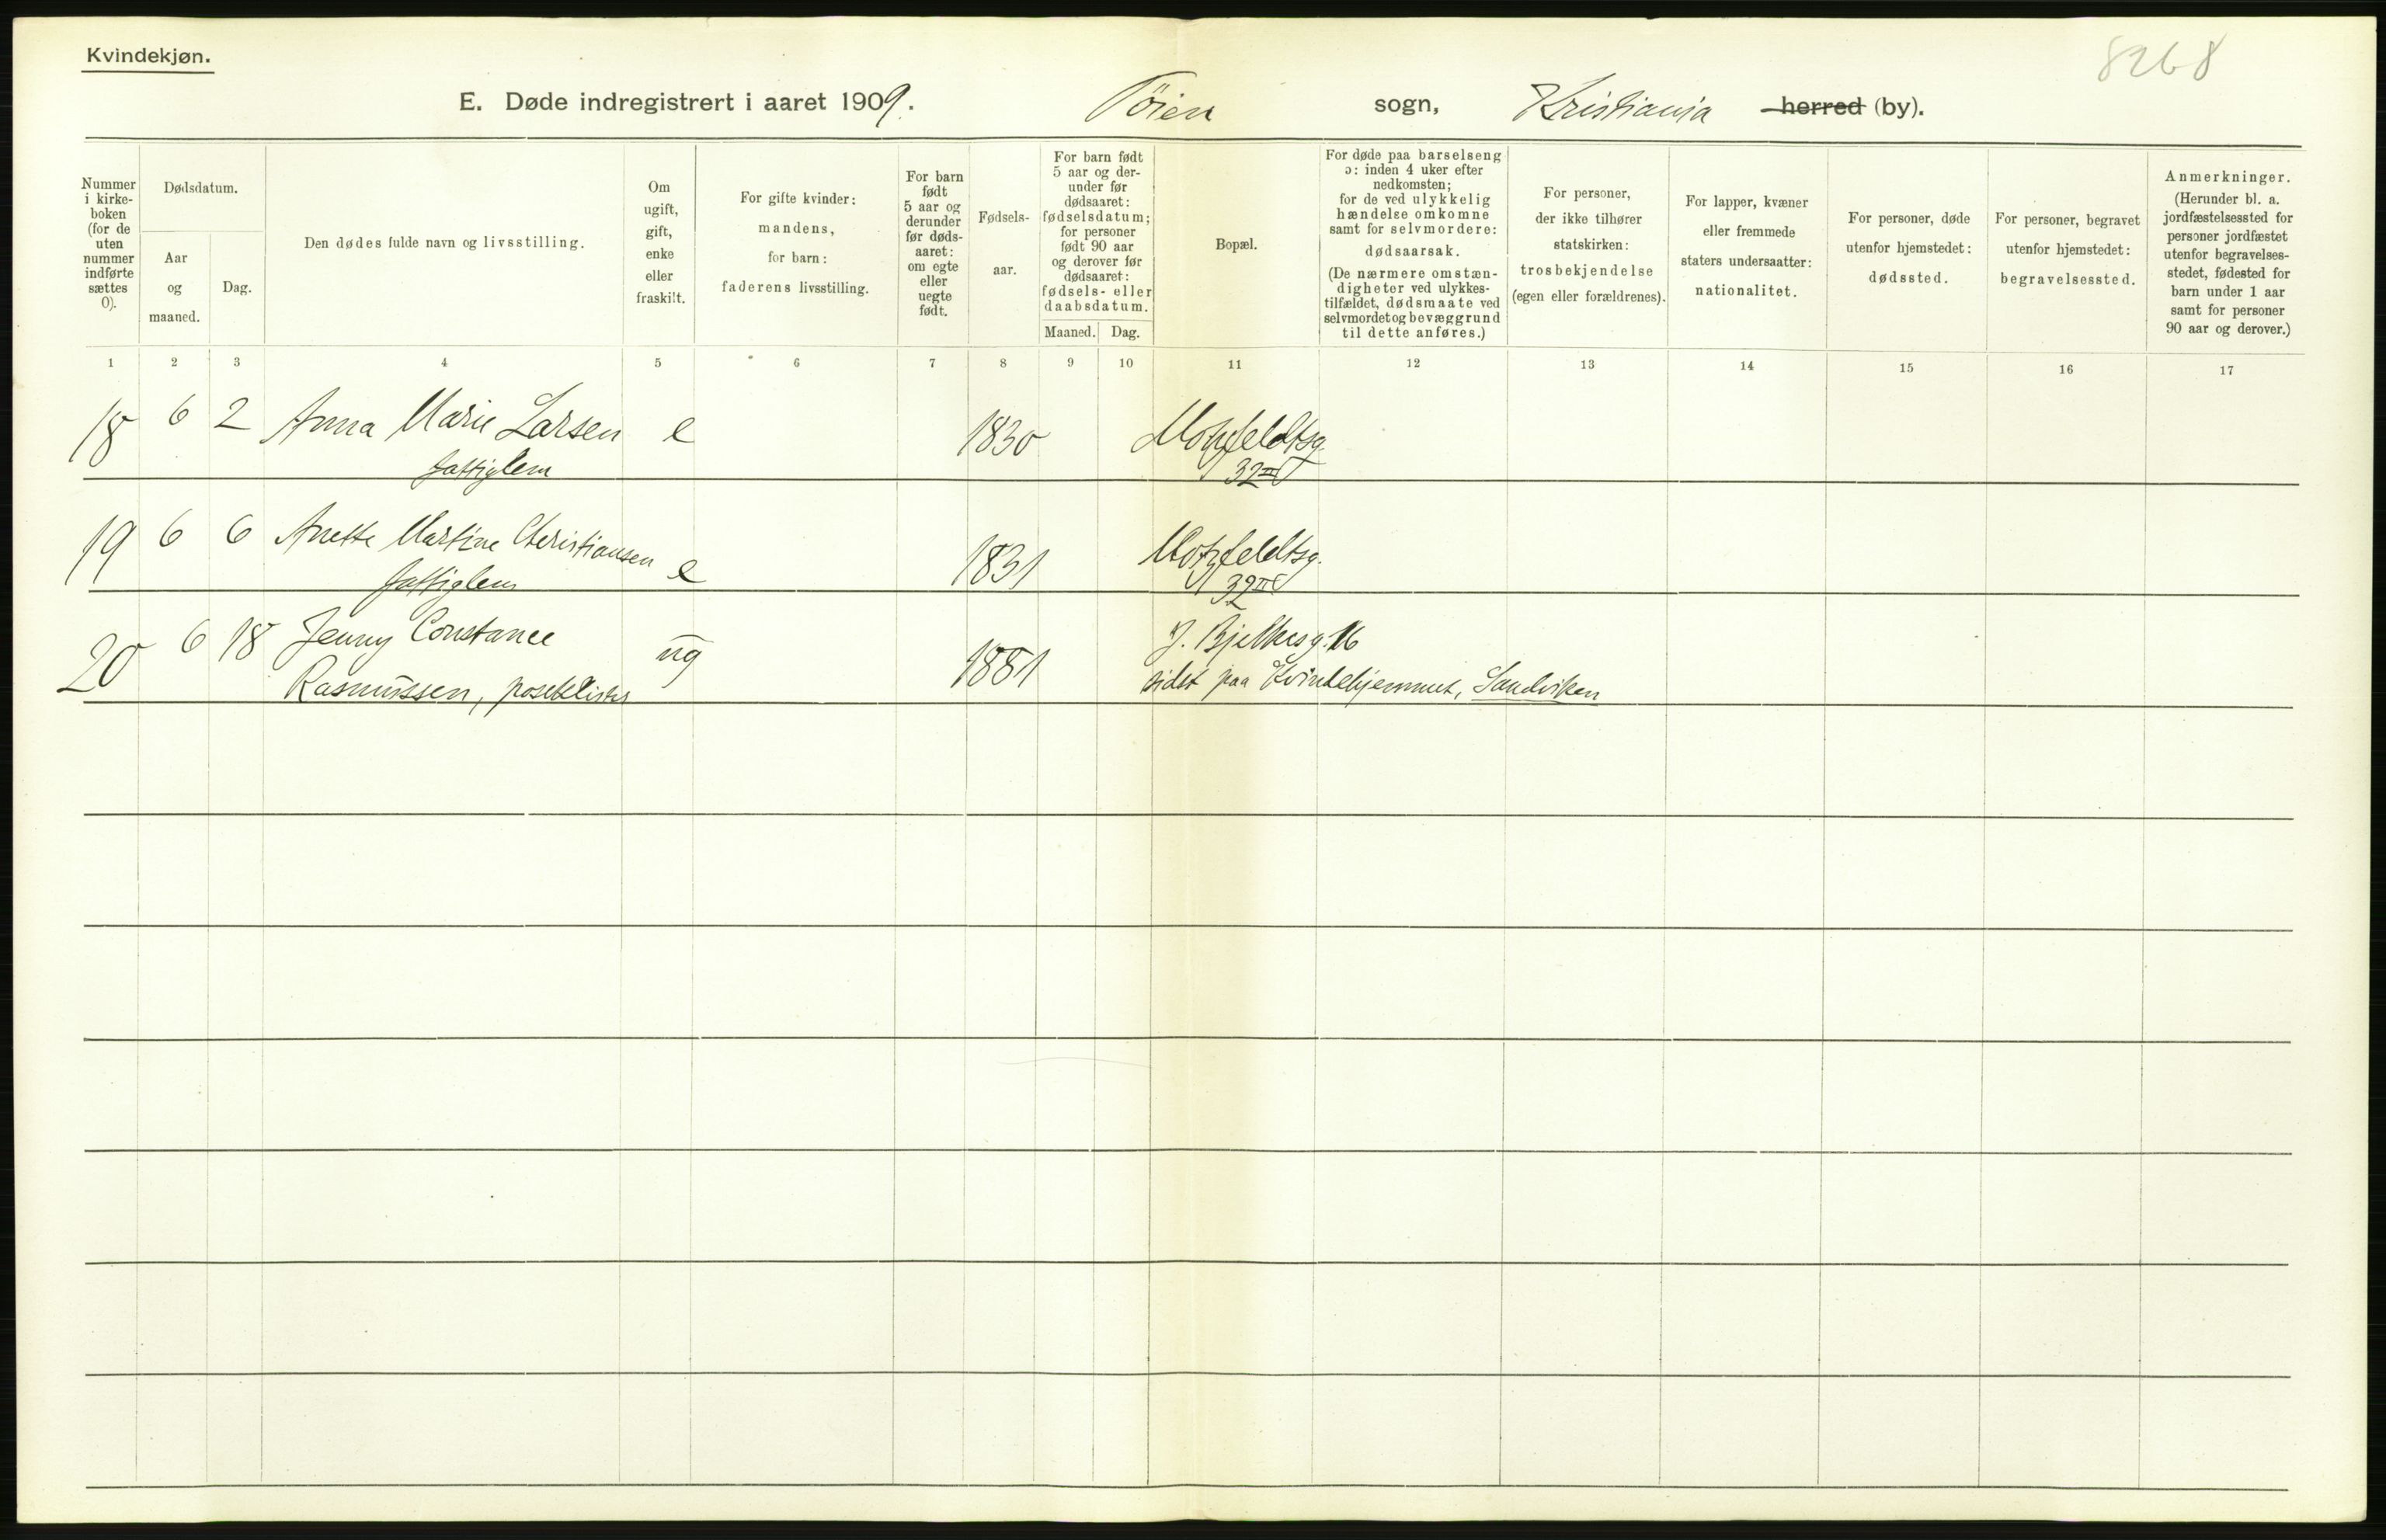 Kvindekjøn.
8268
E. Døde indregistrert i aaret 1909. Töien sogn, Kristiania herred (by).
Nummer
i kirke-
boken
(for de
uten
nummer
indførte
sættes
0).
Dødsdatum.
Aar
og
maaned.
Dag.
Den dødes fulde navn og livsstilling.
Om
ugift,
gift,
enke
eller
fraskilt.
For gifte kvinder:
mandens,
for barn:
faderens livsstilling.
For barn
født
5 aar og
derunder
før døds-
aaret:
om egte
eller
uegte
født.
Fødsels-
aar.
For barn født
5 aar og der-
under før
dødsaaret:
fødselsdatum;
for personer
født 90 aar
og derover før
dødsaaret:
fødsels- eller
daabsdatum.
Maaned. Dag.
Bopæl.
For døde paa barselseng
ɔ: inden 4 uker efter
nedkomsten;
for de ved ulykkelig
hændelse omkomne
samt for selvmordere:
dødsaarsak.
(De nærmere omstæn-
digheter ved ulykkes-
tilfældet, dødsmaate ved
selvmordet og bevæggrund
til dette anføres.)
For personer,
der ikke tilhører
statskirken:
trosbekjendelse
(egen eller forældrenes).
For lapper, kvæner
eller fremmede
staters undersaatter:
nationalitet.
For personer, døde
utenfor hjemstedet:
dødssted.
For personer, begravet
utenfor hjemstedet:
begravelsessted.
Anmerkninger.
(Herunder bl. a.
jordfæstelsessted for
personer jordfæstet
utenfor begravelses-
stedet, fødested for
barn under 1 aar
samt for personer
90 aar og derover.)
1 2 3 4 5 6 7 8 9 10 11 12 13 14 15 16 17
18 6 2 Anna Marie Larsen e 1830 Motzfeldtsg.
fattiglem 32 II
19 6 6 Anette Martine Christiansen e 1831 Motzfeldtsg.
fattiglem 32 II
20 6 18 Jenny Constance ug 1881 J. Bjelkesg. 16
Rasmussen, sidst paa Kvindehjemmet, Sandviken